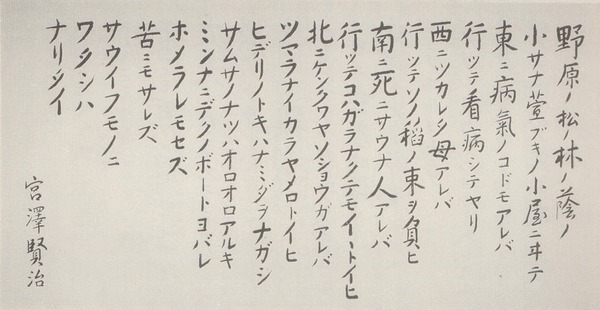 野原ノ松ノ林ノ蔭ノ
小サナ萱ブキノ小屋ニヰテ
東ニ病氣ノコドモアレバ
行ッテ看病シテヤリ
西ニツカレタ母アレバ
行ッテソノ稻ノ束ヲ負ヒ
南ニ死ニサウナ人アレバ
行ッテコハガラナクテモイヽトイヒ
北ニケンクヮヤソショウガアレバ
ツマラナイカラヤメロトイヒ
ヒデリノトキハナミダヲナガシ
サムサノナツハオロオロアルキ
ミンナニデクノボートヨバレ
ホメラレモセズ
苦ニモサレズ
サウイフモノニ
ワタシハ
ナリタイ
宮澤賢治